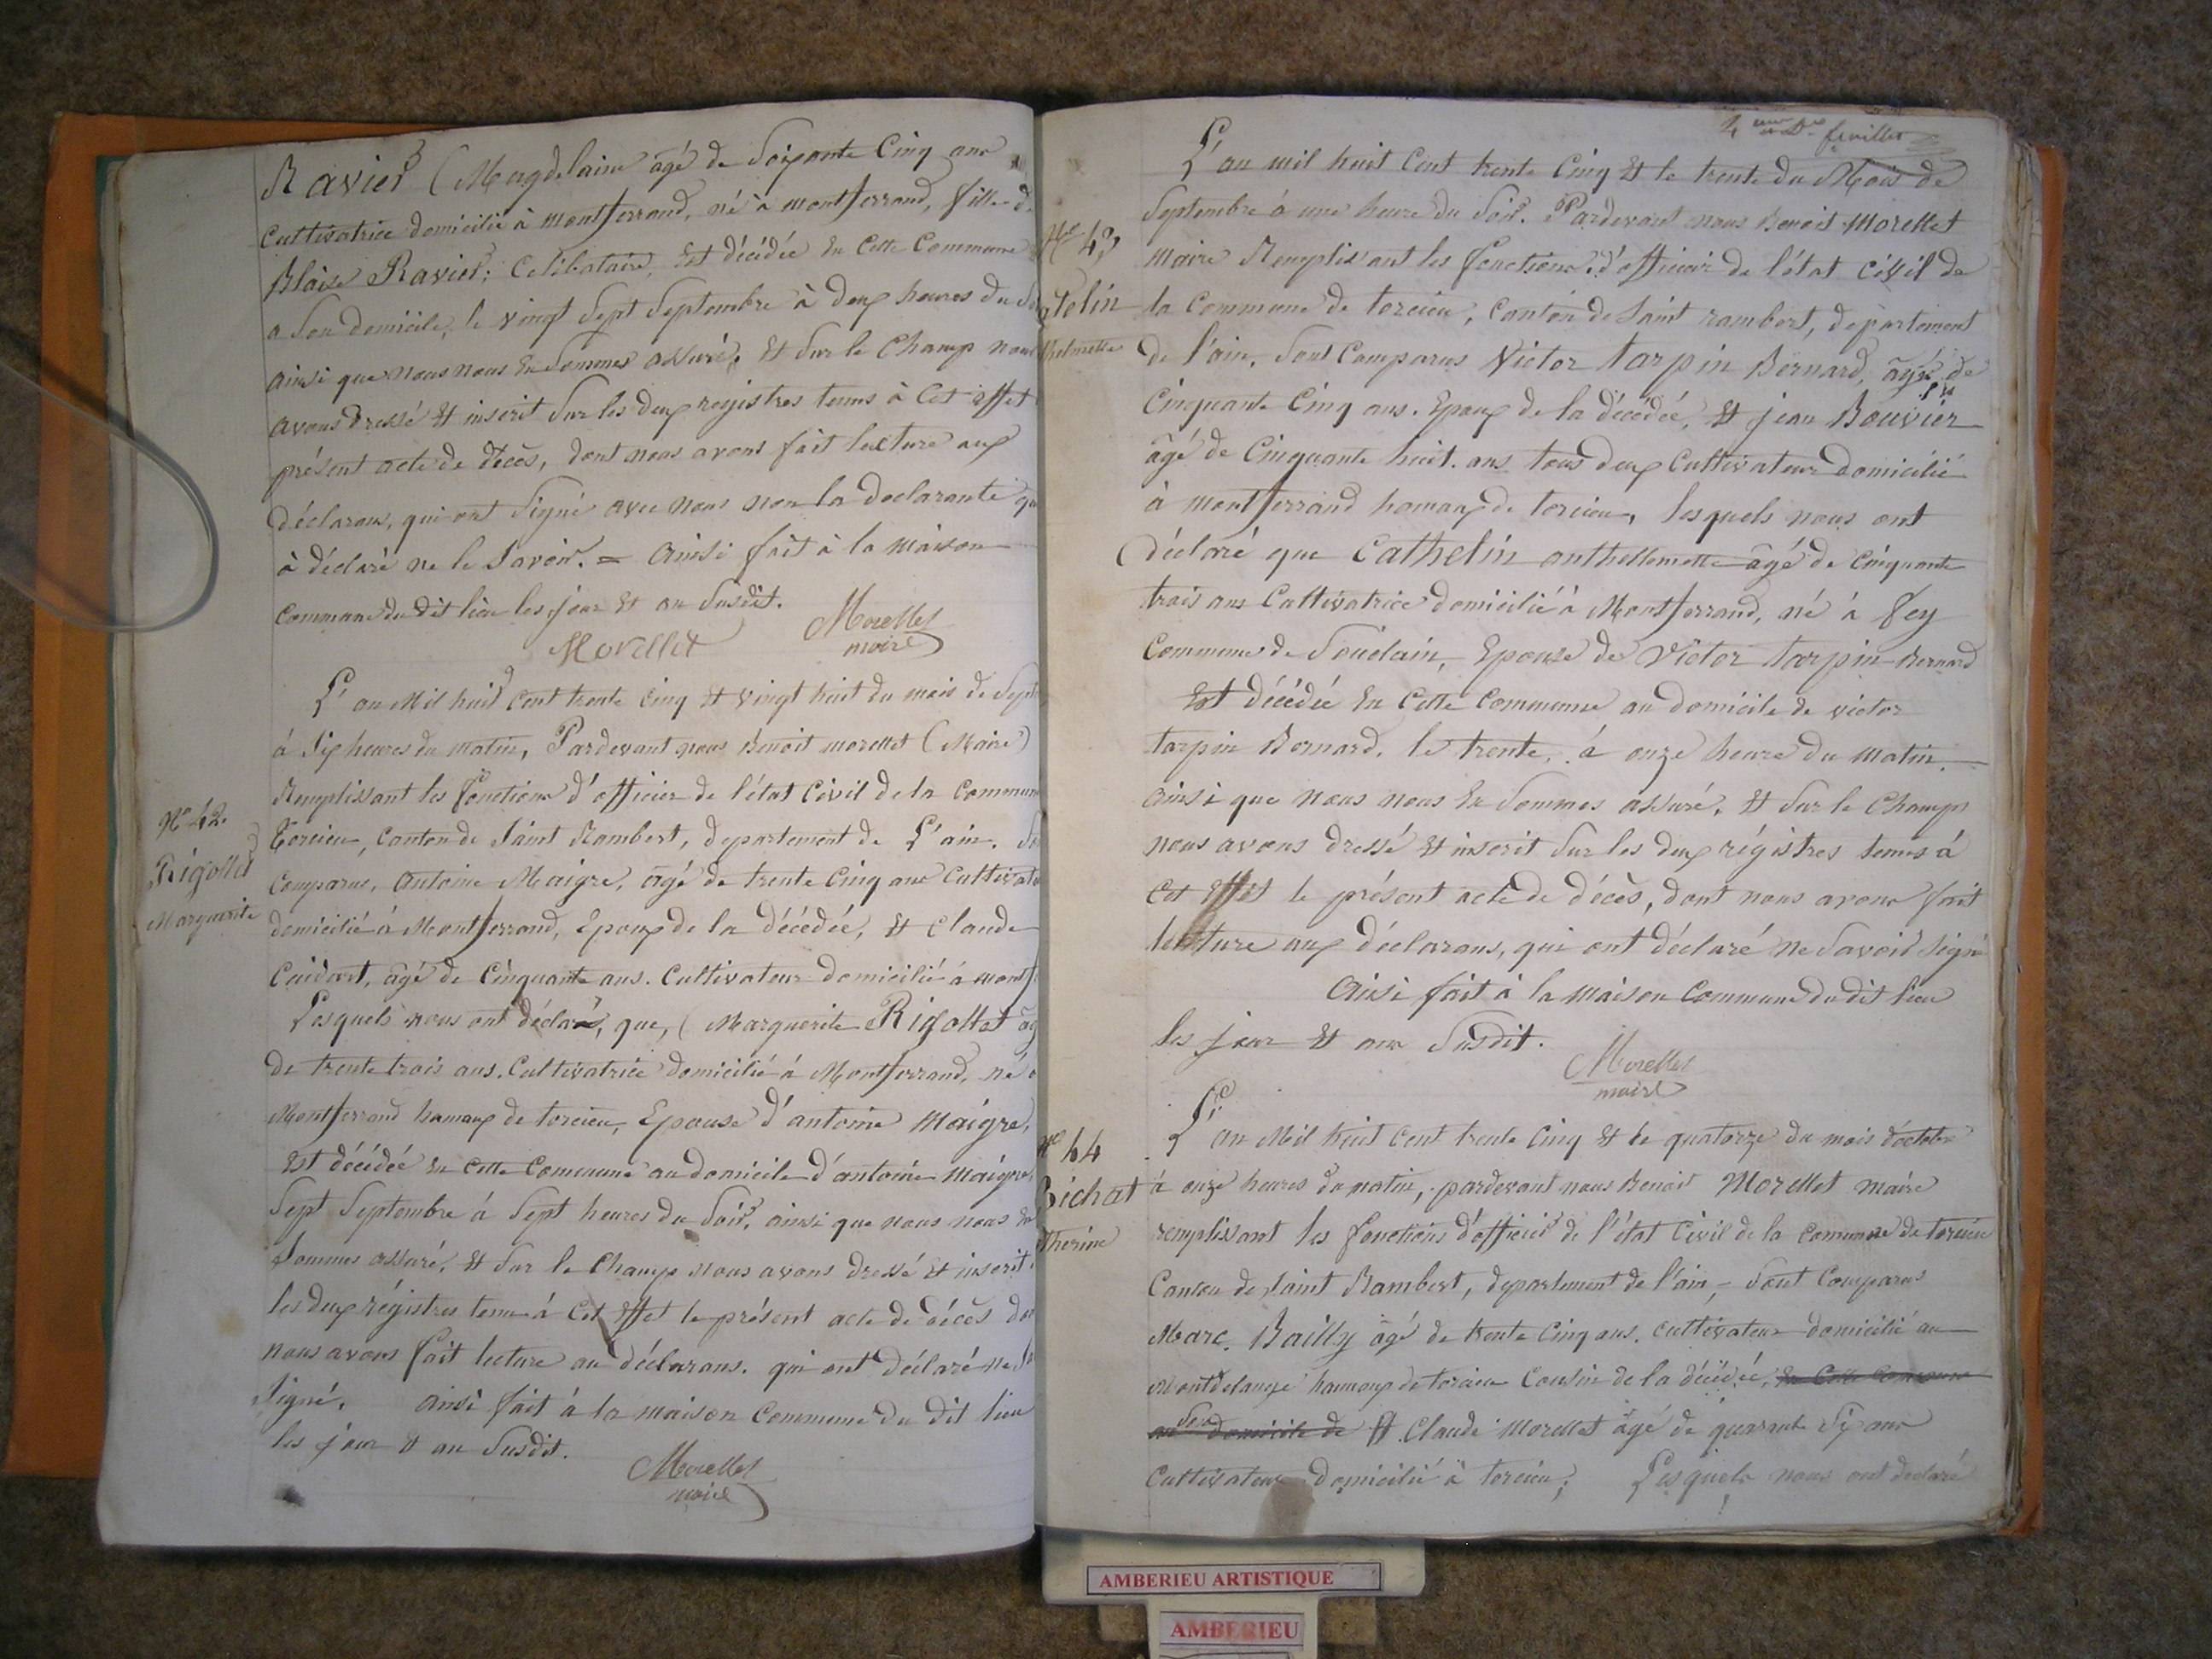 Ravier (Magdelaine âgé de Soixante Cinq ans
Cultivatrice domicilié à montferrand, né à montferrand, fille de
Blaise Ravier; Célibataire, Est décédée En Cette Commune
a Son domicile, le vingt Sept Septembre à deux heures du
ainsi que nous nous En Sommes assuré, Et Sur le Champ nous
avons dressé Et inscrit Sur les deux registres tenus à Cet effet
présent acte de décès, dont nous avons fait lecture aux
déclarans, qui ont Signé avec nous non la declarante qui
à déclaré ne le Savoir. = Ainsi fait à la maison
Commune du dit lieu les jour Et an Susdit.
Morellet
Morellet
maire
L'an Mil huit Cent trente Cinq Et vingt huit du mois de Sept
à Six heures du matin, Pardevant nous Benoit morellet (Maire)
Remplissant les fonctions d'officier de l'état Civil de la Commune
N° 42.
Torcieu, Canton de Saint Rambert, département de L'ain.
Rigollet
Comparus, Antoine Maigre, âgé de trente Cinq ans Cultivate
Marguerite
domicilié à Montferrand, Epoux de la décédée, Et Claude
âgé de Cinquante ans. Cultivateur domicilié à montf
Lesquels nous ont déclaré, que, (Marguerite Rigollet âg
de trente trois ans. Cultivatrice domicilié à Montferrand, né
Montferrand hamaux de torcieu, Epouse d'antoine Maigre,
Est décédée En Cette Commune au domicile d'antoine Maigre,
Sept Septembre à Sept heures du Soir, ainsi que nous nous En
Sommes assuré, Et Sur le Champ nous avons dressé Et inscrit
les deux régistres tenu à Cet Effet le présent acte de décès don
nous avons fait lecture au déclarans. qui ont déclaré ne
Signé. Ainsi fait à la maison Commune du dit lieu
les jour Et an Susdit.
Morellet
maire
feuillet
L'an mil huit Cent trente Cinq Et le trente du Mois de
Septembre à une heure du Soir. Pardevant nous Benoit Morellet
N° 43
Maire Remplissant les fonctions d'officier de l'état Civil de
la Commune de torcieu, Canton de Saint rambert, département
de l'ain, Sont Comparus Victor tarpin Bernard, âgé de
Cinquante Cinq ans. Epoux de la décédée, Et jean Bouvier
âgé de Cinquante huit ans tous deux Cultivateur domicilié
à montferrand hamaux de torcieu, lesquels nous ont
déclaré que Cathelin anthellemette âgé de Cinquante
trois ans Cultivatrice domicilié à Montferrand, né à fey
Commune de Soudain, Epouse de Victor tarpin Bernard
Est décédée En Cette Commune au domicile de victor
tarpin Bernard. le trente, à onze heure du Matin.
Ainsi que nous nous En Sommes assuré, Et Sur le Champ
nous avons dressé Et inscrit Sur les deux régistres tenus à
Cet Effet le présent acte de décès, dont nous avons fait
lecture aux déclarans, qui ont déclaré ne Savoir Signé
Ainsi fait à la Maison Commune du dit lieu
les jour Et an Susdit.
Morellet
maire
L'an Mil huit Cent trente Cinq Et le quatorze du mois d'octobre
N° 44
à onze heures du matin, pardevant nous Benoit Morellet maire
Bichat
remplissant les fonctions d'officier de l'état Civil de la Commune de torcieu
therine
Canton de Saint Rambert, département de l'ain, - Sont Comparus
Marc. Bailly âgé de trente Cinq ans. Cultivateur domicilié au
Montdelange hamaux de torcieu Cousin de la décédée, En Cette Commune
domicile de Et Claude Morellet âgé de quarante Six ans
Cultivateur domicilié à torcieu; Lesquels nous ont declaré
AMBERIEU ARTISTIQUE
AMBERIEU